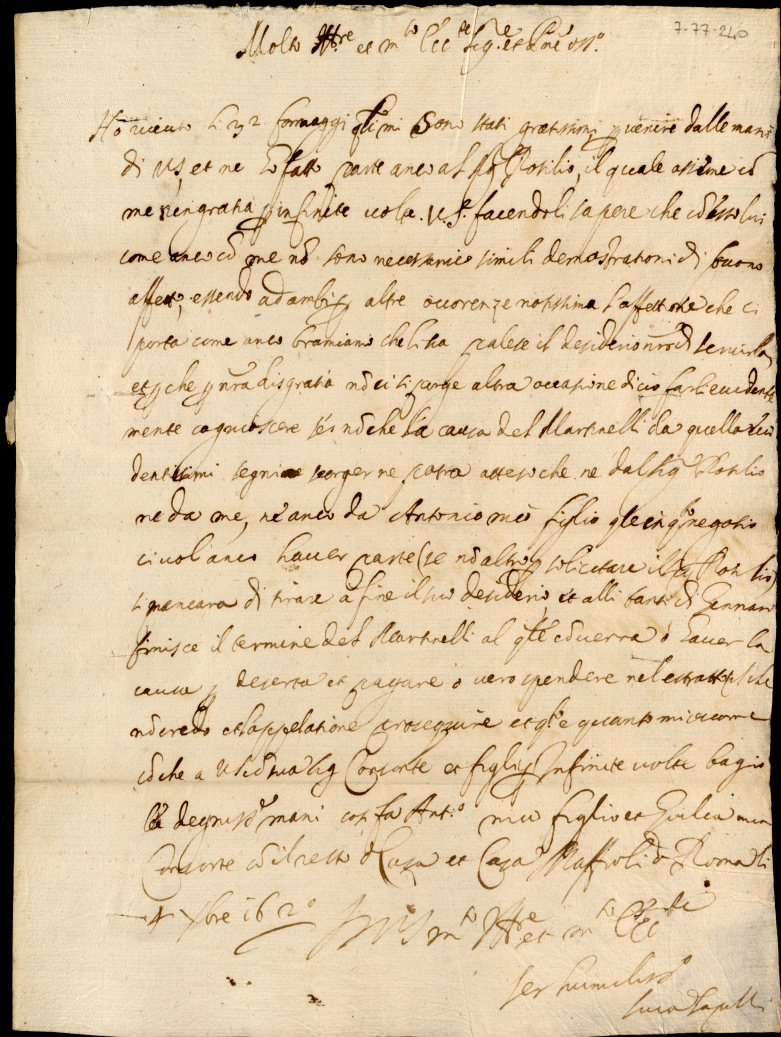 7-77-240
Molto Ill.re et m.to Ecc.te sig.re et
Ho riceuto li 32 formaggi q.li mi sono stati gratissimi p venire dalle mani
di VS, et ne ho fatto parte anco al sig. Rosilio, il quale assieme cō
me ringratia p infinite volte V.S. facendoli sapere che cō esso lui
come anco cō me nō sono necessarie simili demostrationi di buono
affetto, essendo ad ambi p altre occorenze notissima l'affettione che ci
porta come anco bramiamo che li sia palese il desiderio nr̄o di servirla,
et p che p nr̄a disgratia nō ci si porge altra occasione di cio farli evidente
mente cognoscere se nō che la causa del Martinelli da quella
dentissimi segni scorgerne potra atteso che ne dal sig. Rosilio
ne da me, ne anco da Antonio mio figlio q.le in q.to negotio
ci vol anco haver parte (se nō altro p solicitare il sig. Rosilio)
si mancara di tirare a fine il suo desiderio, et alli tanti di Gennaro
finisce il termine del Martinelli al q.le cōverra o haver la
causa p deserta et pagare o vero spendere nel
nō credo et l'appelatione proseguire et q.to e quanto mi occorre
cō che a VS cō sua sig. Consorte et figli p infinite volte bagio
le degniss.e mani con fa Ant.o mio figlio et Giulia mia
Consorte cō il resto di Casa et Casa Maffioli di Roma li
4 Xbre 1620
Di VS m.to Ill.re et m.to Ecc.te
Ser humiliss.o
Luca